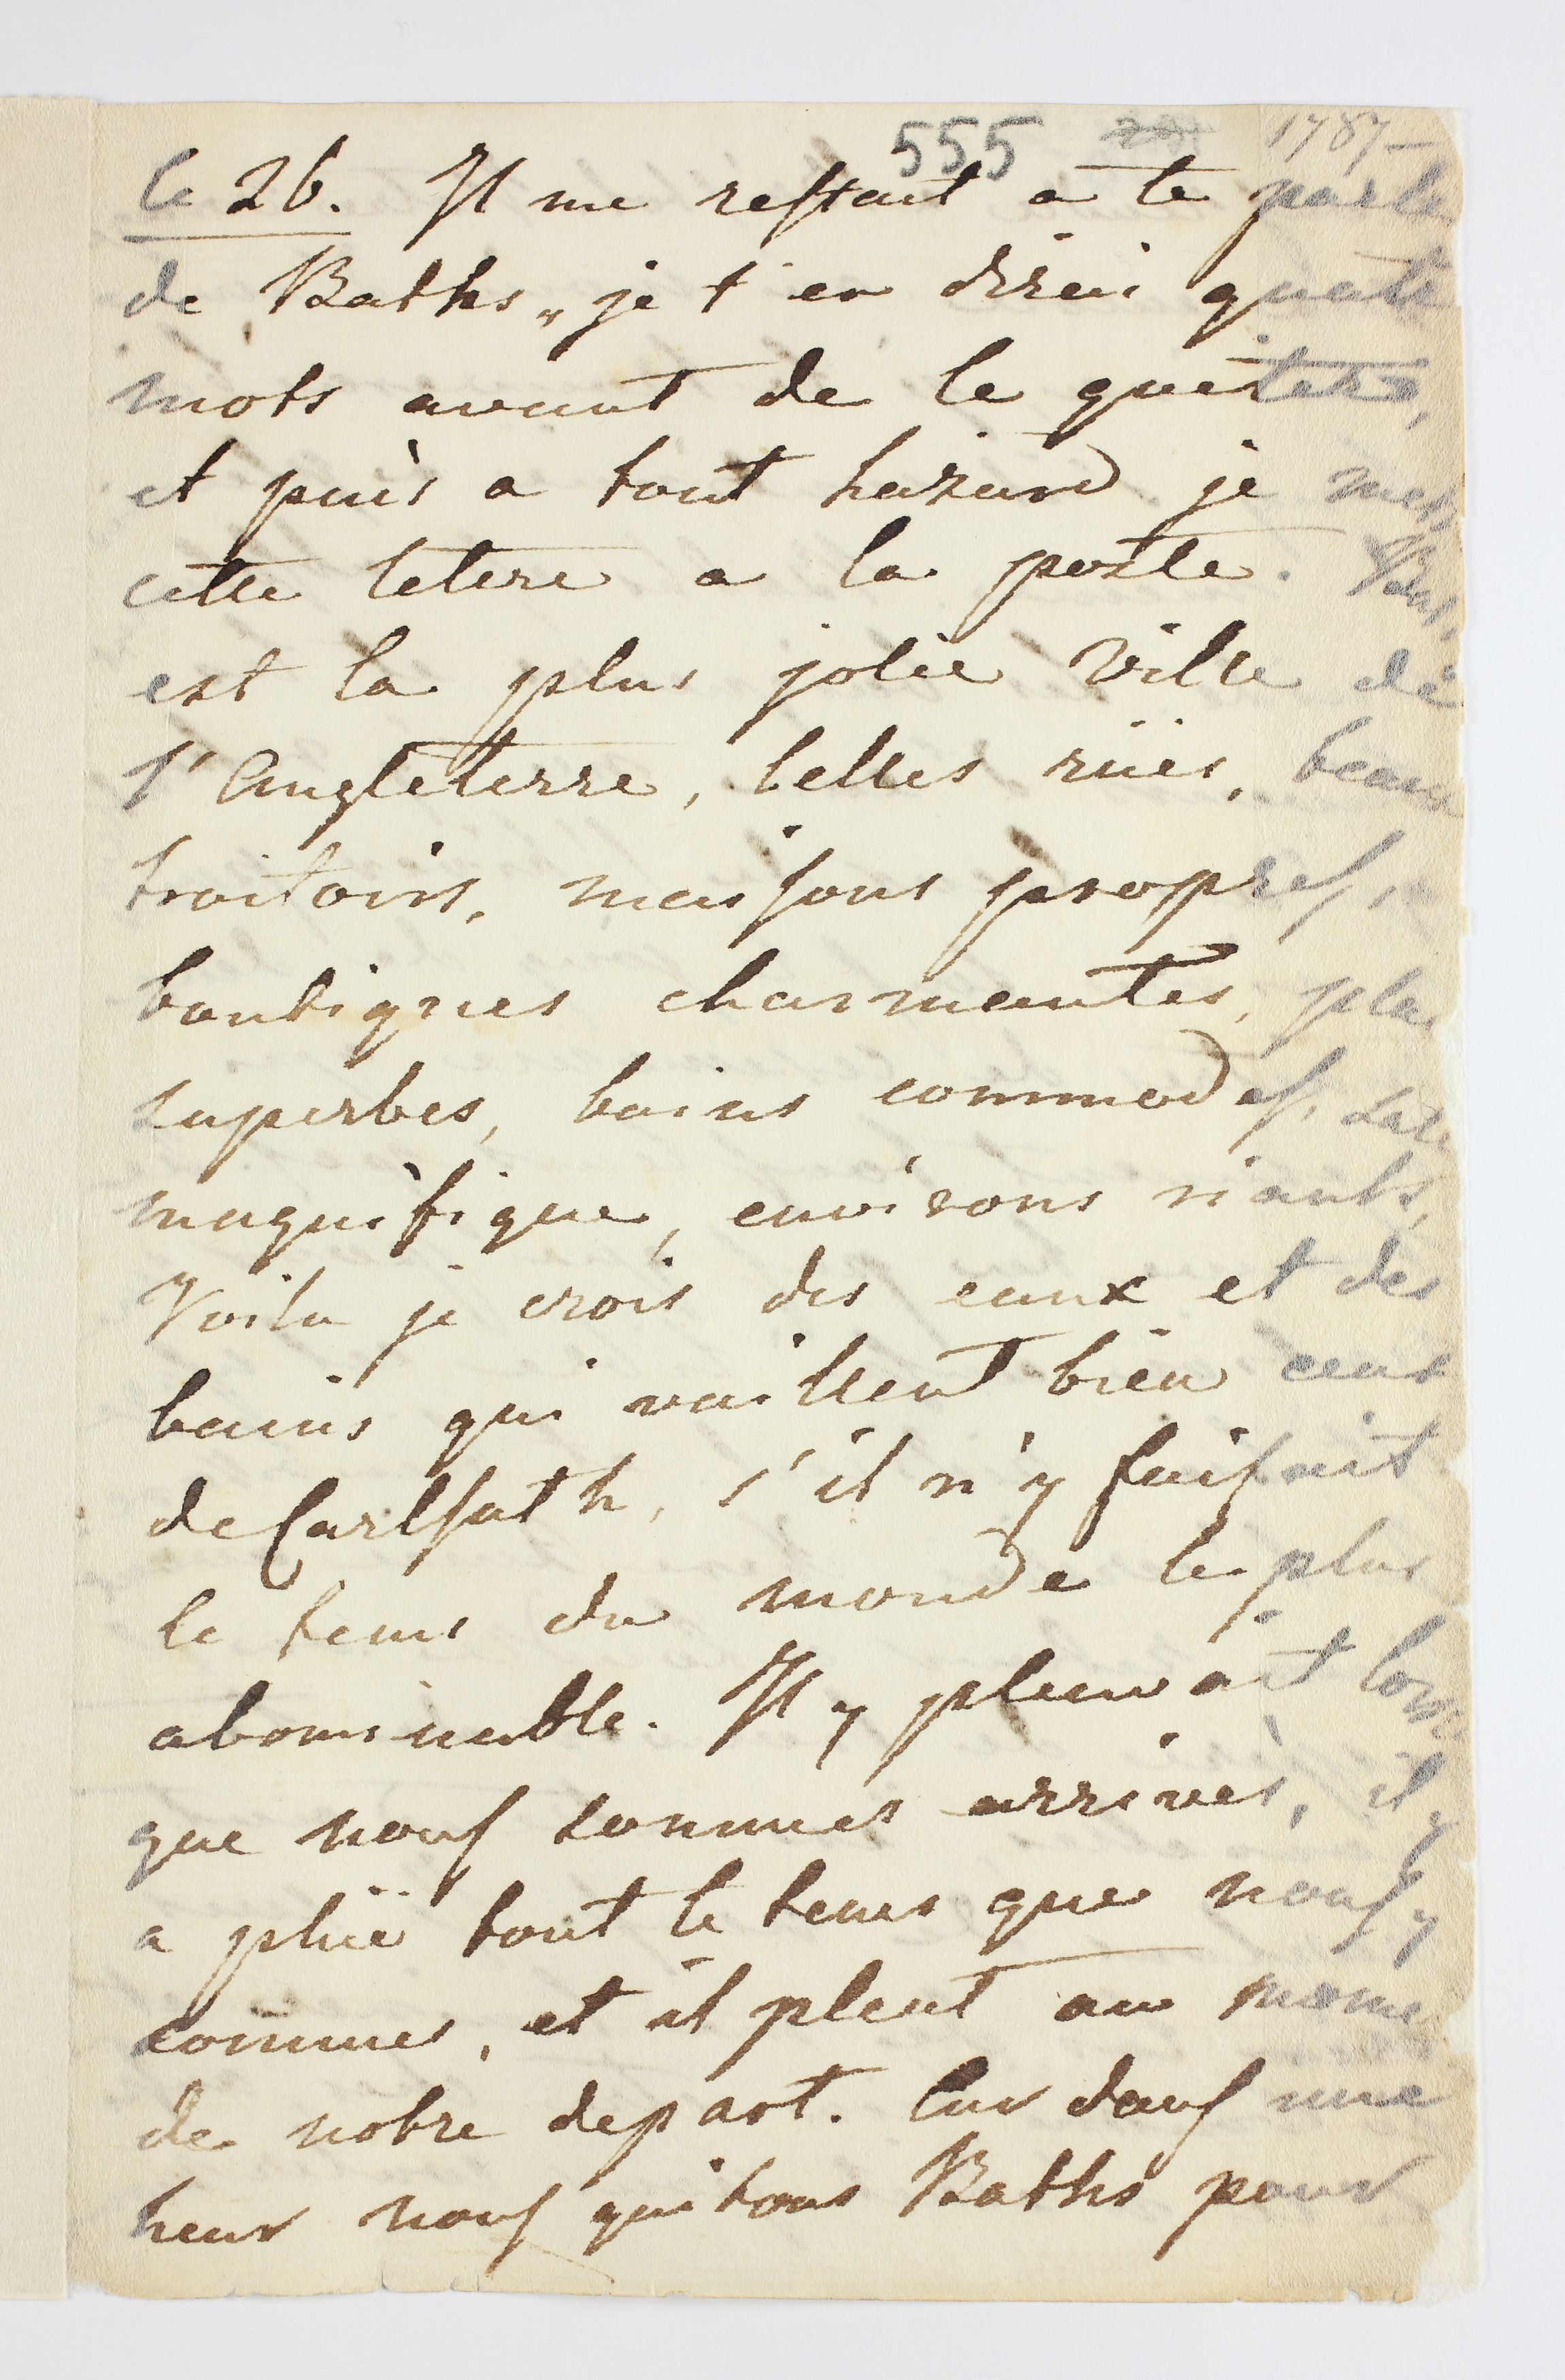 555 1787
le 26. Il me restait a te parle
de Baths, je t'en dirai quatre
mots avant de le quiter,
et puis a tout hazard je mets
cette letre a la poste. Bat
est la plus jolie Ville de
l'Angleterre, belles rües, beaux
troitoirs, maisons propres,
boutiques charmantes, pla
superbes, bains commodes, sale
magnifique, environs riants,
Voila je crois des eaux et des
bains qui vaillent bien ceux
de Carlsath, s'il n'y faisait
le tems du monde le plus
abominable. Il y pleuvait lors
que nous sommes arrivés, il y
a plüe tout le tems que nous y
sommes, et il pleut au mome
de notre depart. Car dans une
heur nous quitons Baths pour